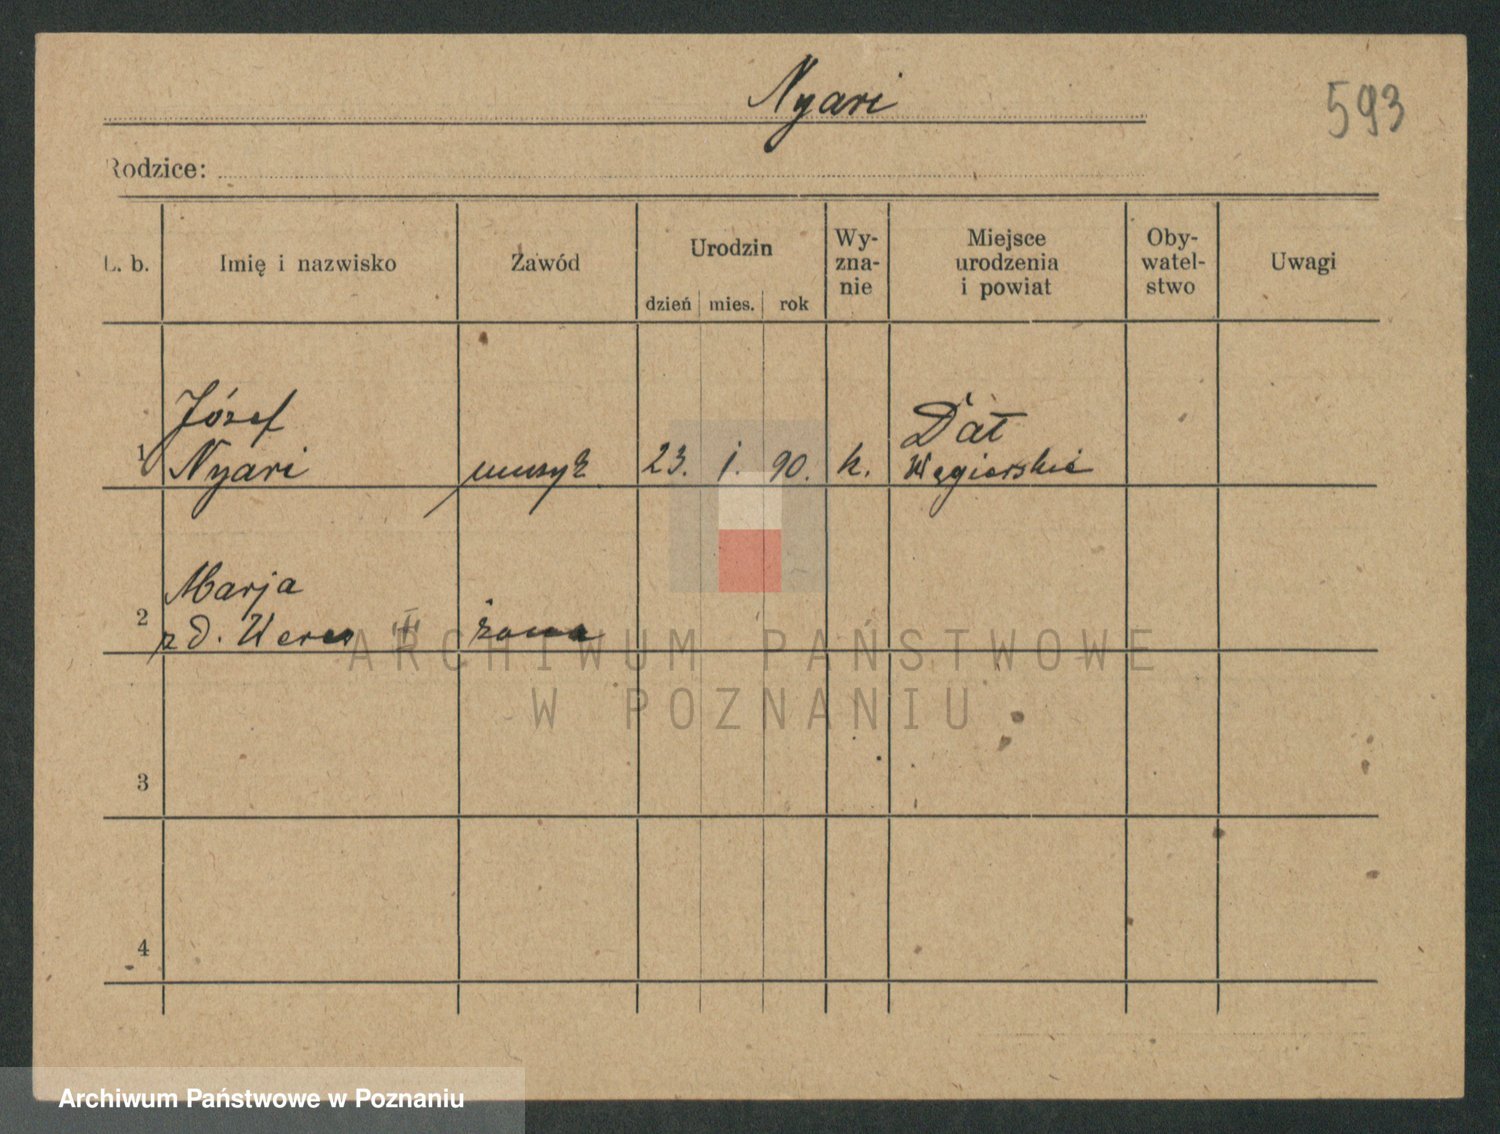 Nyari
593
Rodzice:
L. b. Imię i nazwisko Zawód Urodzin dzień mies. rok Wy-zna-nie Miejsce urodzenia i powiat Oby-watel-stwo Uwagi
Józef
1 Nyari muzyk 23. 1. 90. k. Dał
Węgierskie
Marja
2 z d. Weres żona
ARCHIWUM PAŃSTWOWE
W POZNANIU
3
4
Archiwum Państwowe w Poznaniu